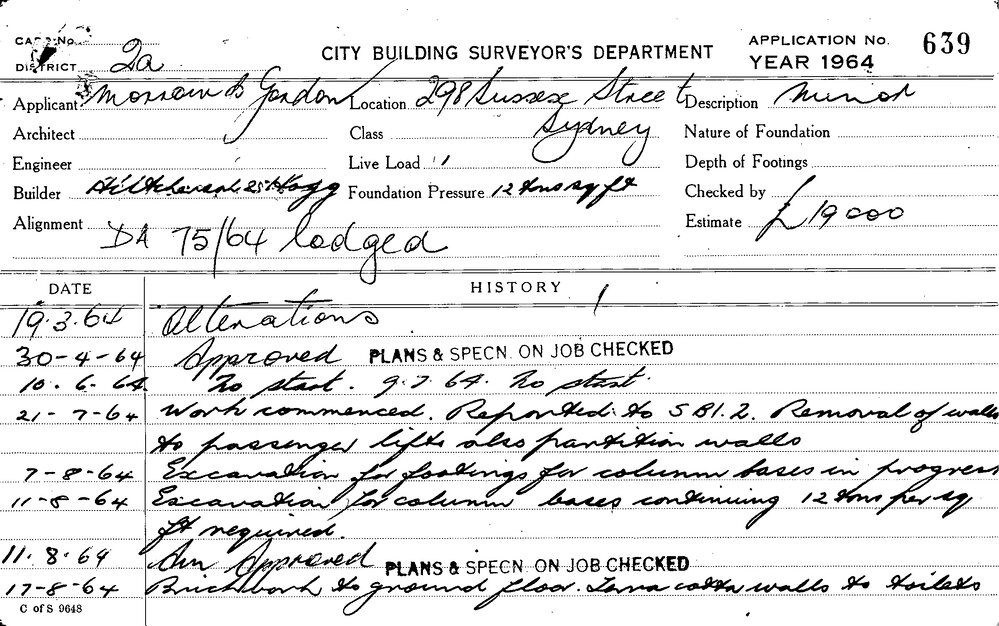 CARD No.
DISTRICT 2a
CITY BUILDING SURVEYOR'S DEPARTMENT
APPLICATION No. 639
YEAR 1964
Applicant Morrow & Gordon Location 298 Sussex Street Description Minor
Architect Class Sydney Nature of Foundation
Engineer Live Load Depth of Footings
Builder Foundation Pressure 12 tons sq ft Checked by
Alignment DA 75/64 lodged Estimate £19000
DATE HISTORY
19.3.64 Alterations
30-4-64 Approved PLANS & SPECN. ON JOB CHECKED
10.6.64. No start. 9.7.64. No start.
21-7-64 Work commenced. Reported to SBI.2. Removal of walls
to passenger lifts also partition walls
7-8-64 Excavation for footings for column bases in progress
11-8-64 Excavation for column bases continuing 12 tons per sq
ft required.
11.8.64 Am Approved PLANS & SPECN. ON JOB CHECKED
17-8-64 Brickwork to ground floor. Terra cotta walls to toilets
C of S 9648